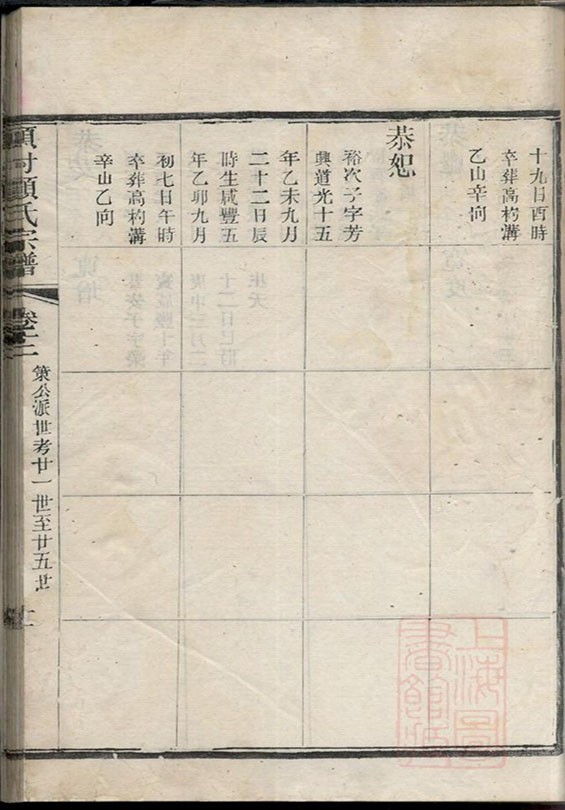 十九日酉時
卒葬高杓溝
乙山辛向
恭恕
裕次子字芳
興道光十五
年乙未九月
二十二日辰
時生咸豐五
年乙卯九月
初七日午時
卒葬高杓溝
辛山乙向
項村顧氏宗譜
卷十二
策公派世考廿一世至廿五世
十一
上海圖書館藏